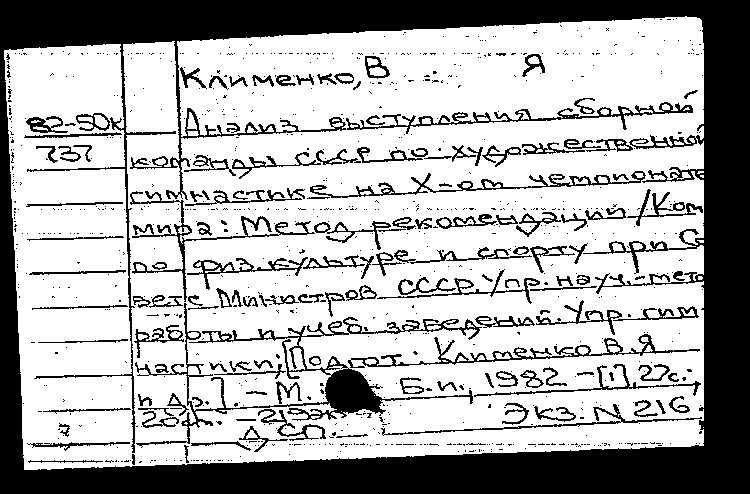 Клименко, В Я
82-50к
737
Анализ выступления сборной
команды СССР по художественной
гимнастике на X-ом чемпионате
мира: Метод. рекомендации / Ком.
по физ.культуре и спорту при Со-
вете Министров СССР. Упр. науч.-мето
работы и учеб. заведений. Упр. гим-
настики; [Подгот.: Клименко В.Я
и др.]. – М.: Б.и., 1982 – [1], 27с.;
20см. – 219эк
Экз. N 216.
ДСП.